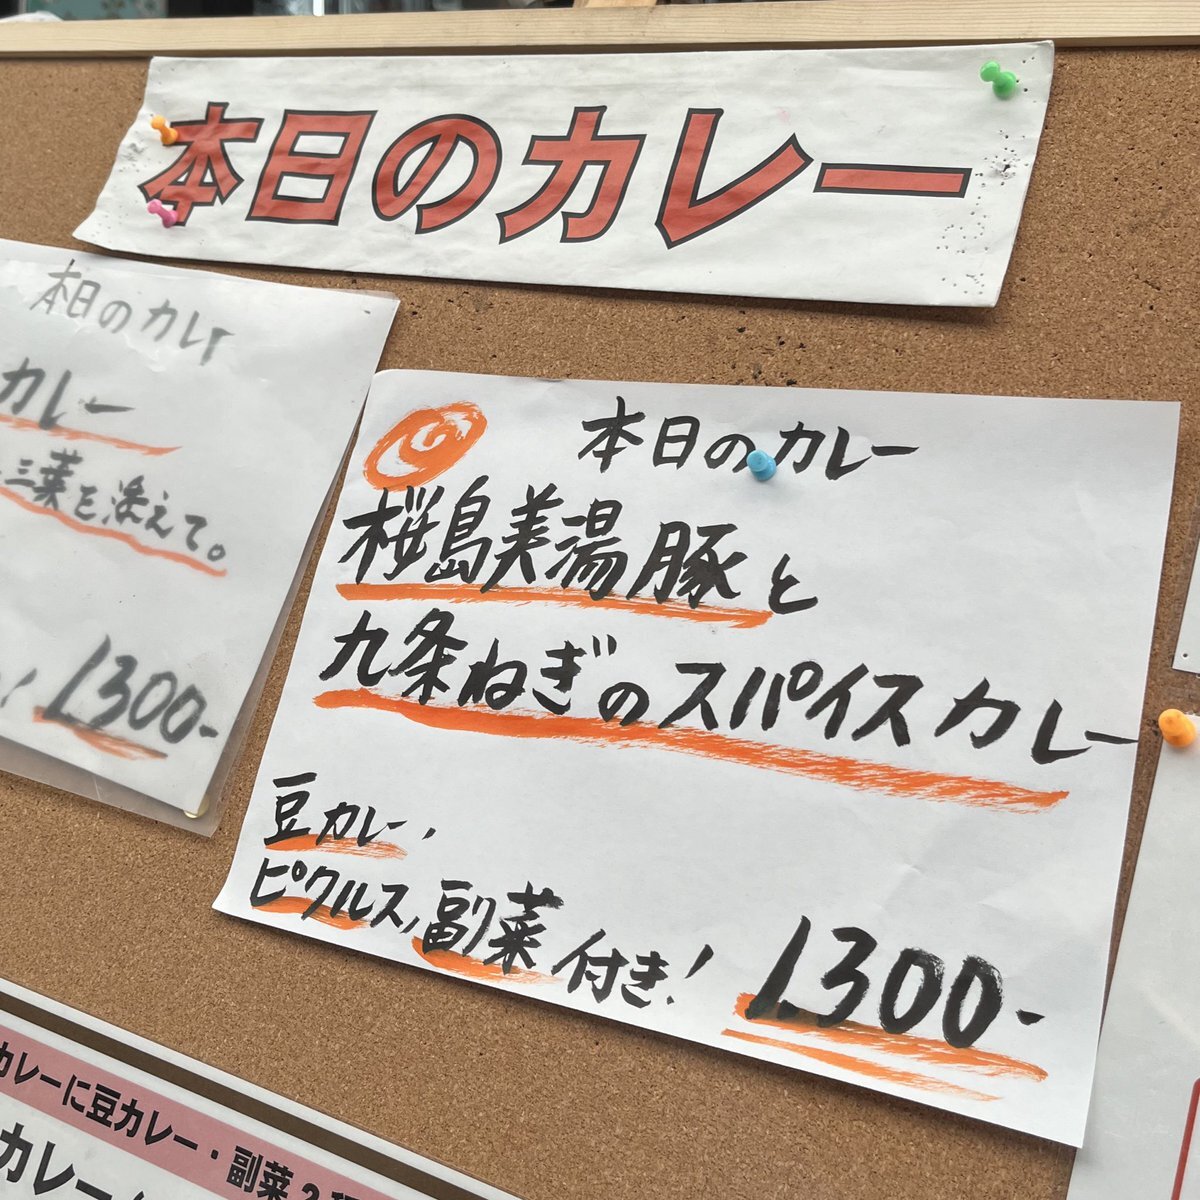 本日のカレー
本日のカレー
カレー
三菜を添えて。
1300-
本日のカレー
桜島美湯豚と
九条ねぎのスパイスカレー
豆カレー、
ピクルス、副菜付き! 1300-
カレーに豆カレー・副菜2
カレー